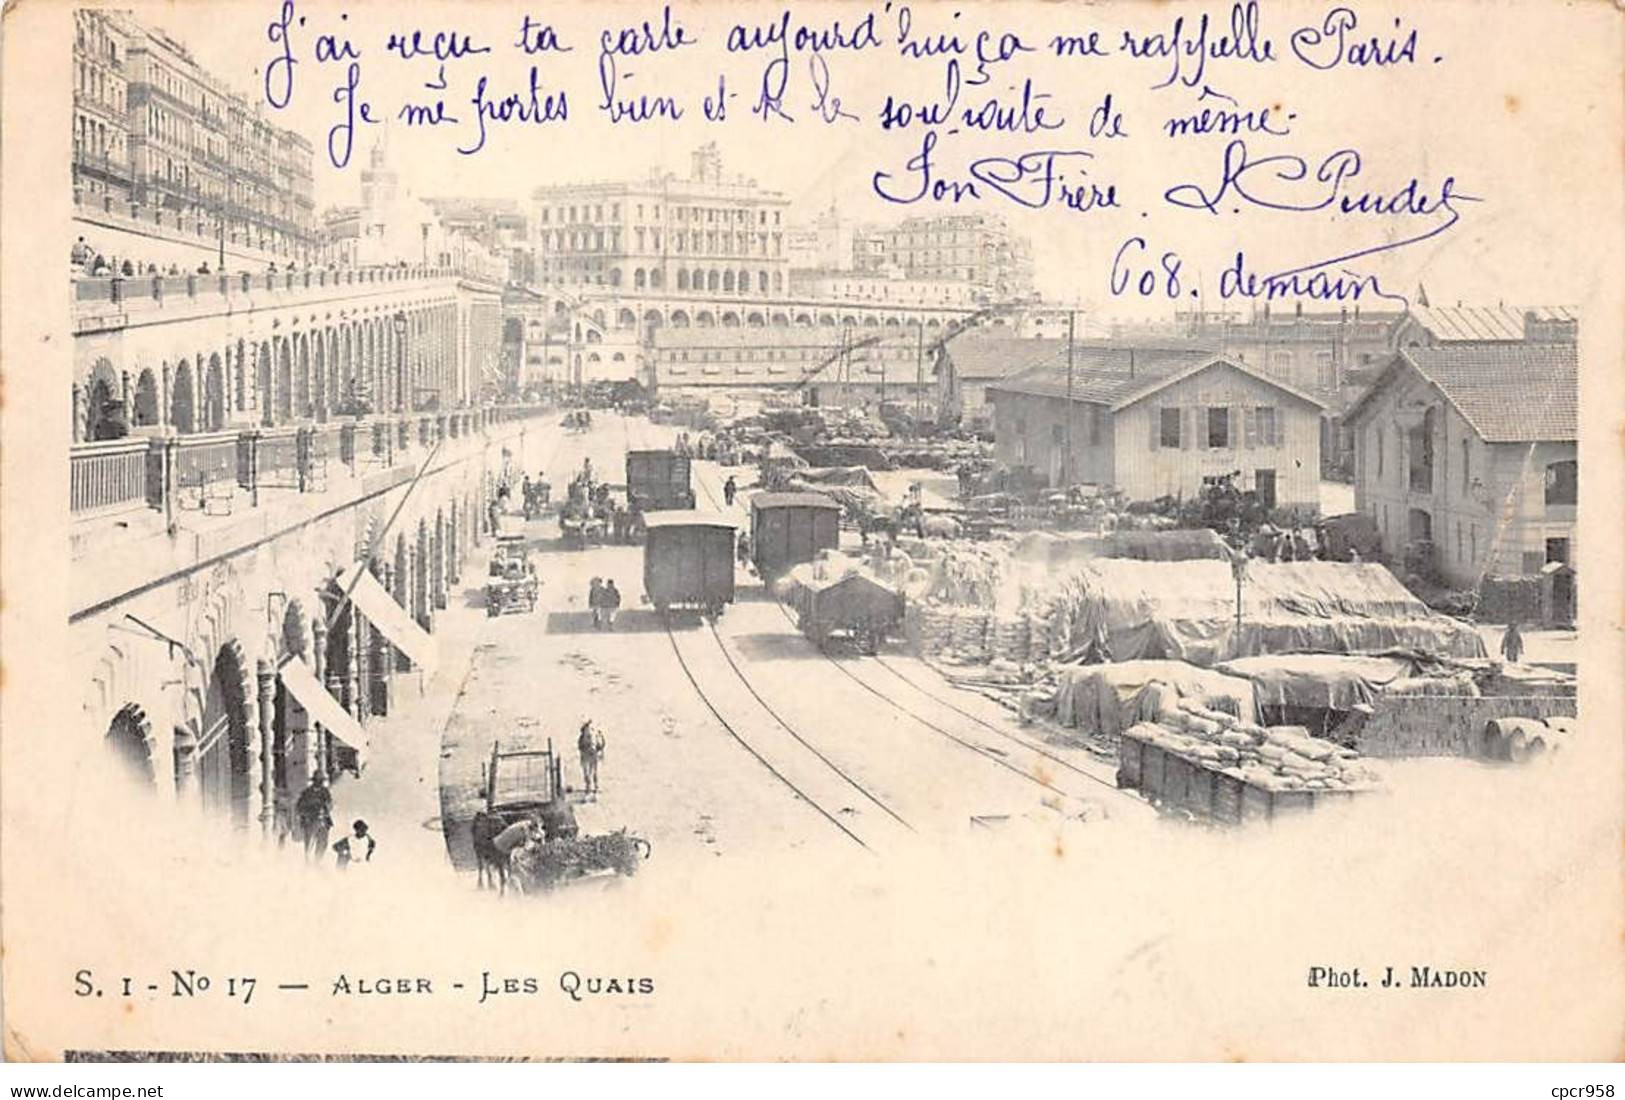 J'ai reçu ta carte aujourd'hui ça me rappelle Paris.
Je mē portes bien et te le souhaite de même.
Ton Frère. L. Pondet
608. demain
S. I - No 17 — ALGER - LES QUAIS
Phot. J. MADON
delcampe.net
cpcr958